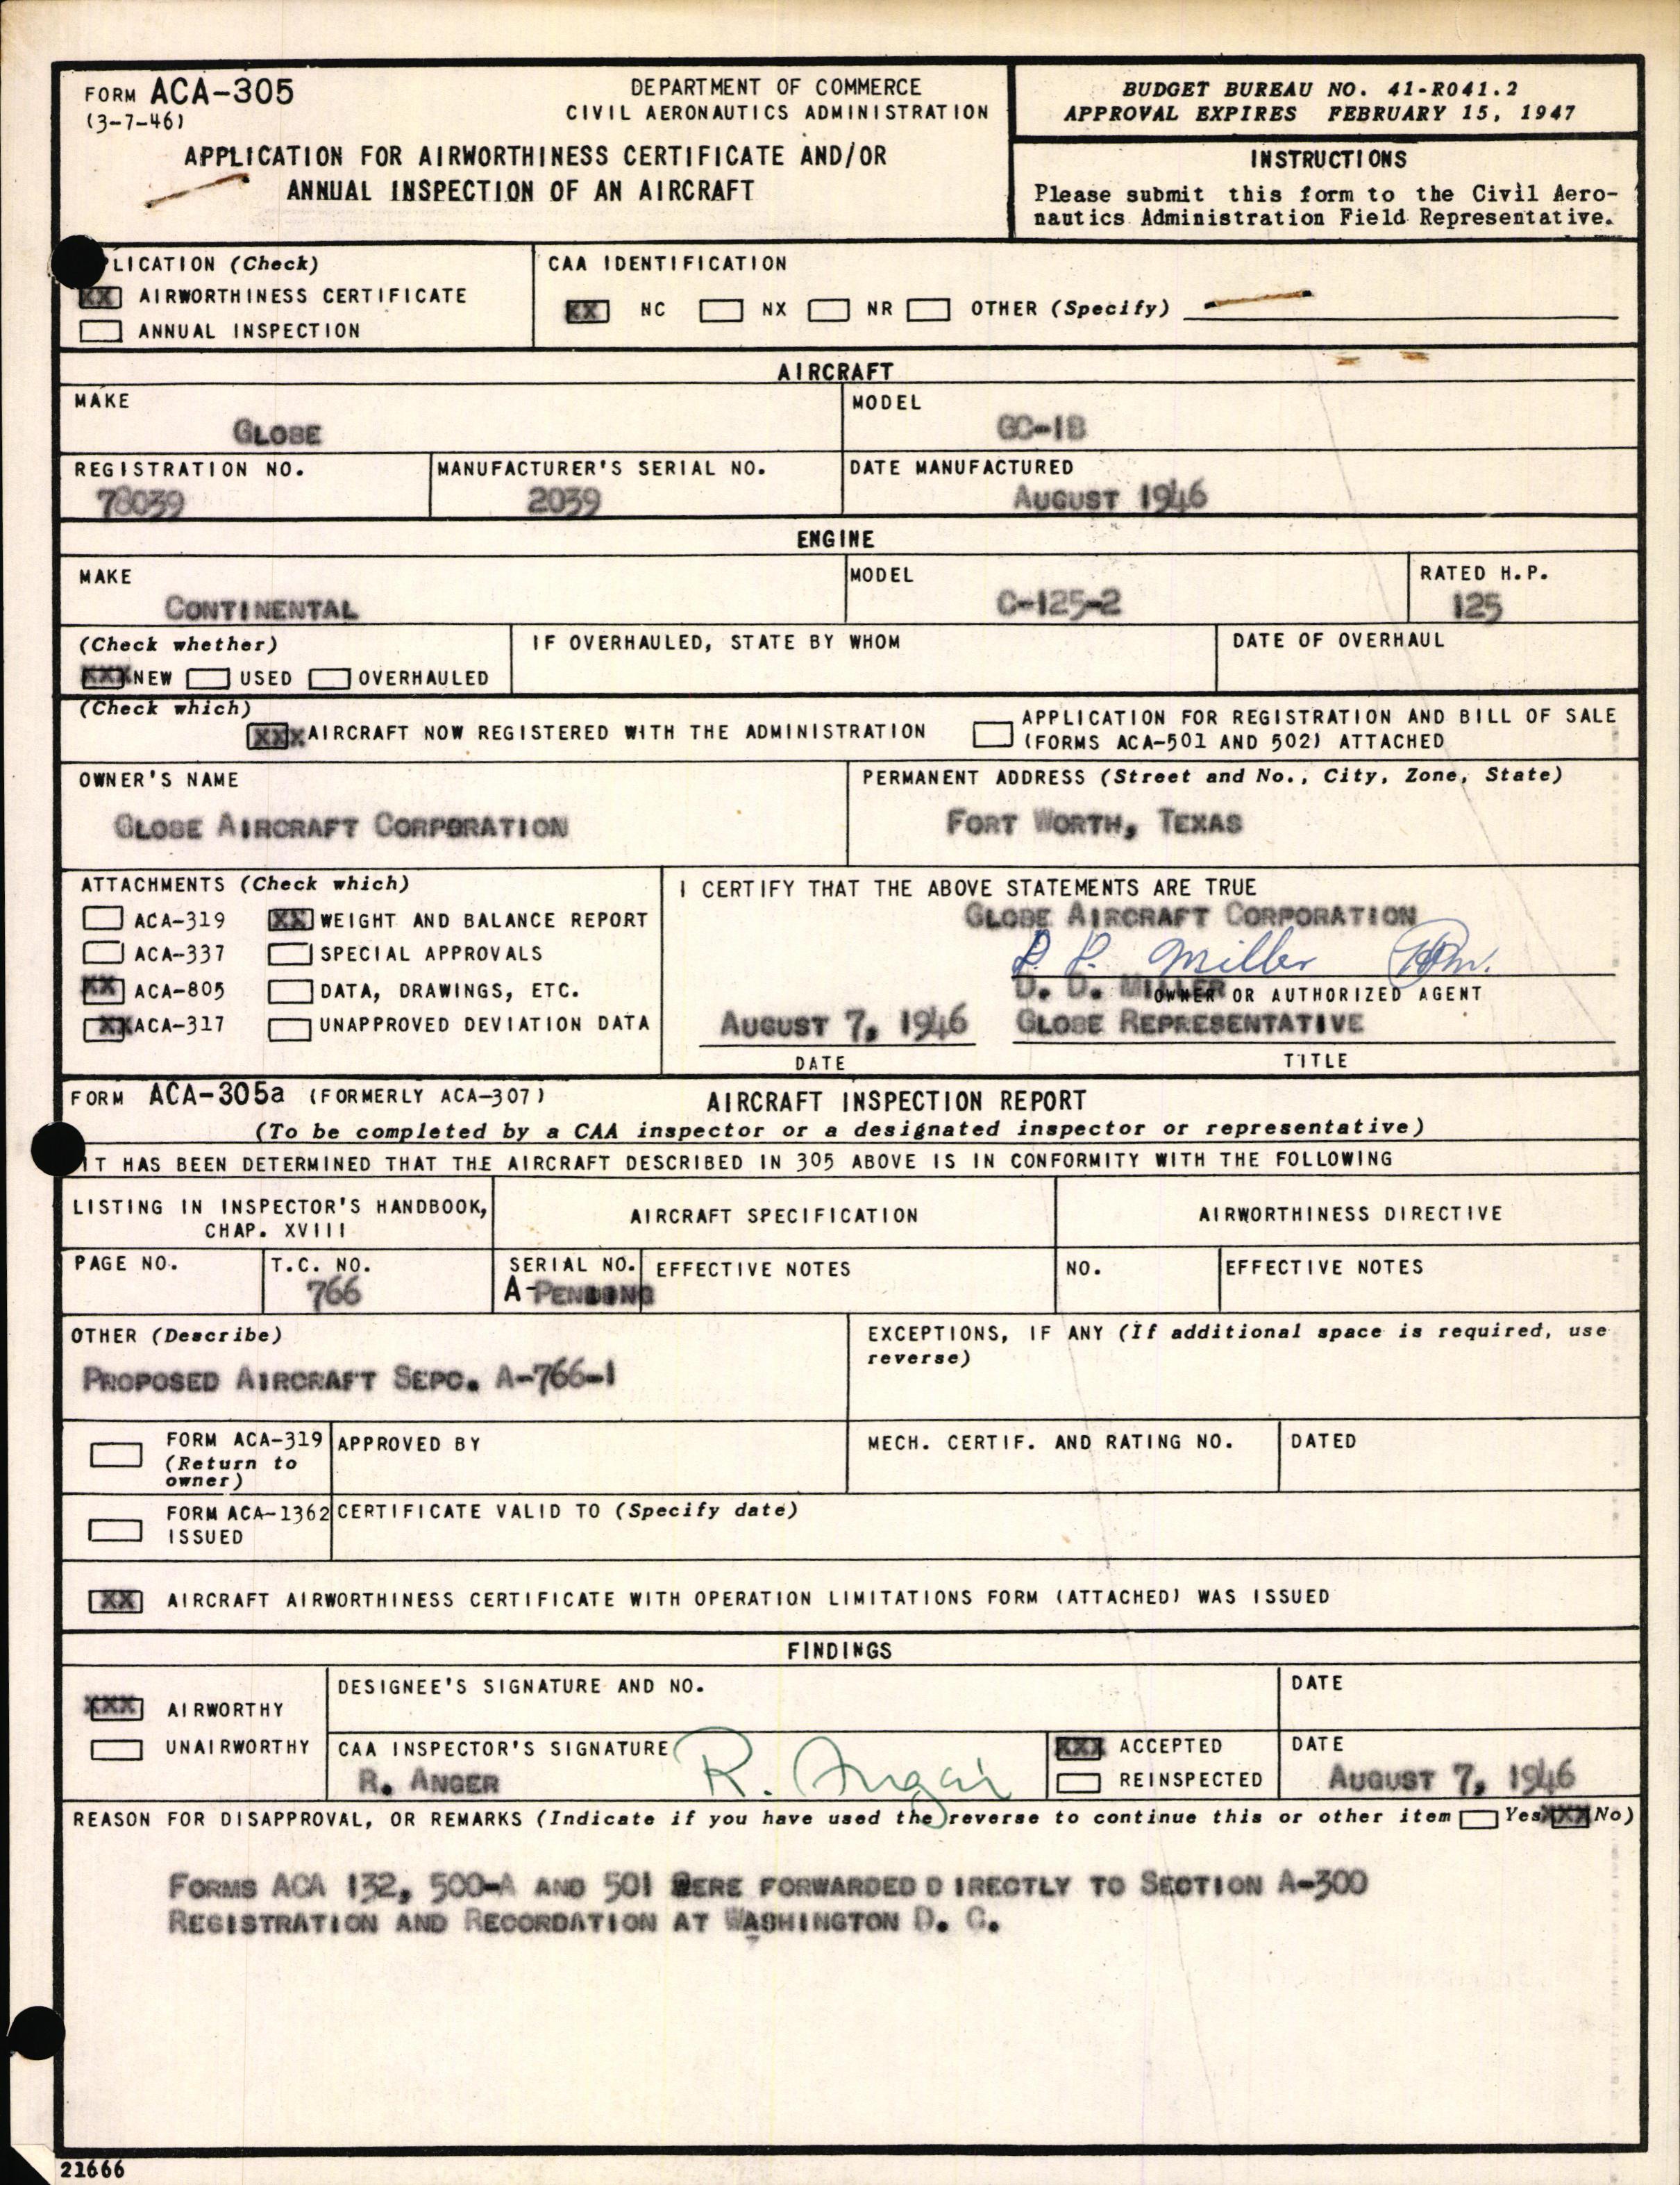 FORM ACA-305
(3-7-46)
DEPARTMENT OF COMMERCE
CIVIL AERONAUTICS ADMINISTRATION
APPLICATION FOR AIRWORTHINESS CERTIFICATE AND/OR
ANNUAL INSPECTION OF AN AIRCRAFT
BUDGET BUREAU NO. 41-R041.2
APPROVAL EXPIRES FEBRUARY 15, 1947
INSTRUCTIONS
Please submit this form to the Civil Aero-
nautics Administration Field Representative.
LICATION (Check)
XX AIRWORTHINESS CERTIFICATE
ANNUAL INSPECTION
CAA IDENTIFICATION
XX NC NX NR OTHER (Specify)
AIRCRAFT
MAKE
GLOBE
MODEL
GC-1B
REGISTRATION NO.
78039
MANUFACTURER'S SERIAL NO.
2039
DATE MANUFACTURED
AUGUST 1946
ENGINE
MAKE
CONTINENTAL
MODEL
C-125-2
RATED H.P.
125
(Check whether)
XXX NEW USED OVERHAULED
IF OVERHAULED, STATE BY WHOM
DATE OF OVERHAUL
(Check which)
XXX AIRCRAFT NOW REGISTERED WITH THE ADMINISTRATION
APPLICATION FOR REGISTRATION AND BILL OF SALE
(FORMS ACA-501 AND 502) ATTACHED
OWNER'S NAME
GLOBE AIRCRAFT CORPORATION
PERMANENT ADDRESS (Street and No., City, Zone, State)
FORT WORTH, TEXAS
ATTACHMENTS (Check which)
ACA-319 XX WEIGHT AND BALANCE REPORT
ACA-337 SPECIAL APPROVALS
XX ACA-805 DATA, DRAWINGS, ETC.
XX ACA-317 UNAPPROVED DEVIATION DATA
I CERTIFY THAT THE ABOVE STATEMENTS ARE TRUE
GLOBE AIRCRAFT CORPORATION
D. D. Miller
D. D. MILLER
OWNER OR AUTHORIZED AGENT
AUGUST 7, 1946 GLOBE REPRESENTATIVE
DATE TITLE
FORM ACA-305a (FORMERLY ACA-307) AIRCRAFT INSPECTION REPORT
(To be completed by a CAA inspector or a designated inspector or representative)
IT HAS BEEN DETERMINED THAT THE AIRCRAFT DESCRIBED IN 305 ABOVE IS IN CONFORMITY WITH THE FOLLOWING
LISTING IN INSPECTOR'S HANDBOOK,
CHAP. XVIII
AIRCRAFT SPECIFICATION
AIRWORTHINESS DIRECTIVE
PAGE NO.
T.C. NO.
766
SERIAL NO.
A-PENDING
EFFECTIVE NOTES
NO.
EFFECTIVE NOTES
OTHER (Describe)
PROPOSED AIRCRAFT SEPC. A-766-1
EXCEPTIONS, IF ANY (If additional space is required, use
reverse)
FORM ACA-319
(Return to
owner)
APPROVED BY
MECH. CERTIF. AND RATING NO.
DATED
FORM ACA-1362
ISSUED
CERTIFICATE VALID TO (Specify date)
XX AIRCRAFT AIRWORTHINESS CERTIFICATE WITH OPERATION LIMITATIONS FORM (ATTACHED) WAS ISSUED
FINDINGS
XXX AIRWORTHY
UNAIRWORTHY
DESIGNEE'S SIGNATURE AND NO.
DATE
CAA INSPECTOR'S SIGNATURE
R. ANGER
R. Anger
XXX ACCEPTED
REINSPECTED
DATE
AUGUST 7, 1946
REASON FOR DISAPPROVAL, OR REMARKS (Indicate if you have used the reverse to continue this or other item Yes XXX No)
FORMS ACA 132, 500-A AND 501 WERE FORWARDED D IRECTLY TO SECTION A-300
REGISTRATION AND RECORDATION AT WASHINGTON D. C.
21666